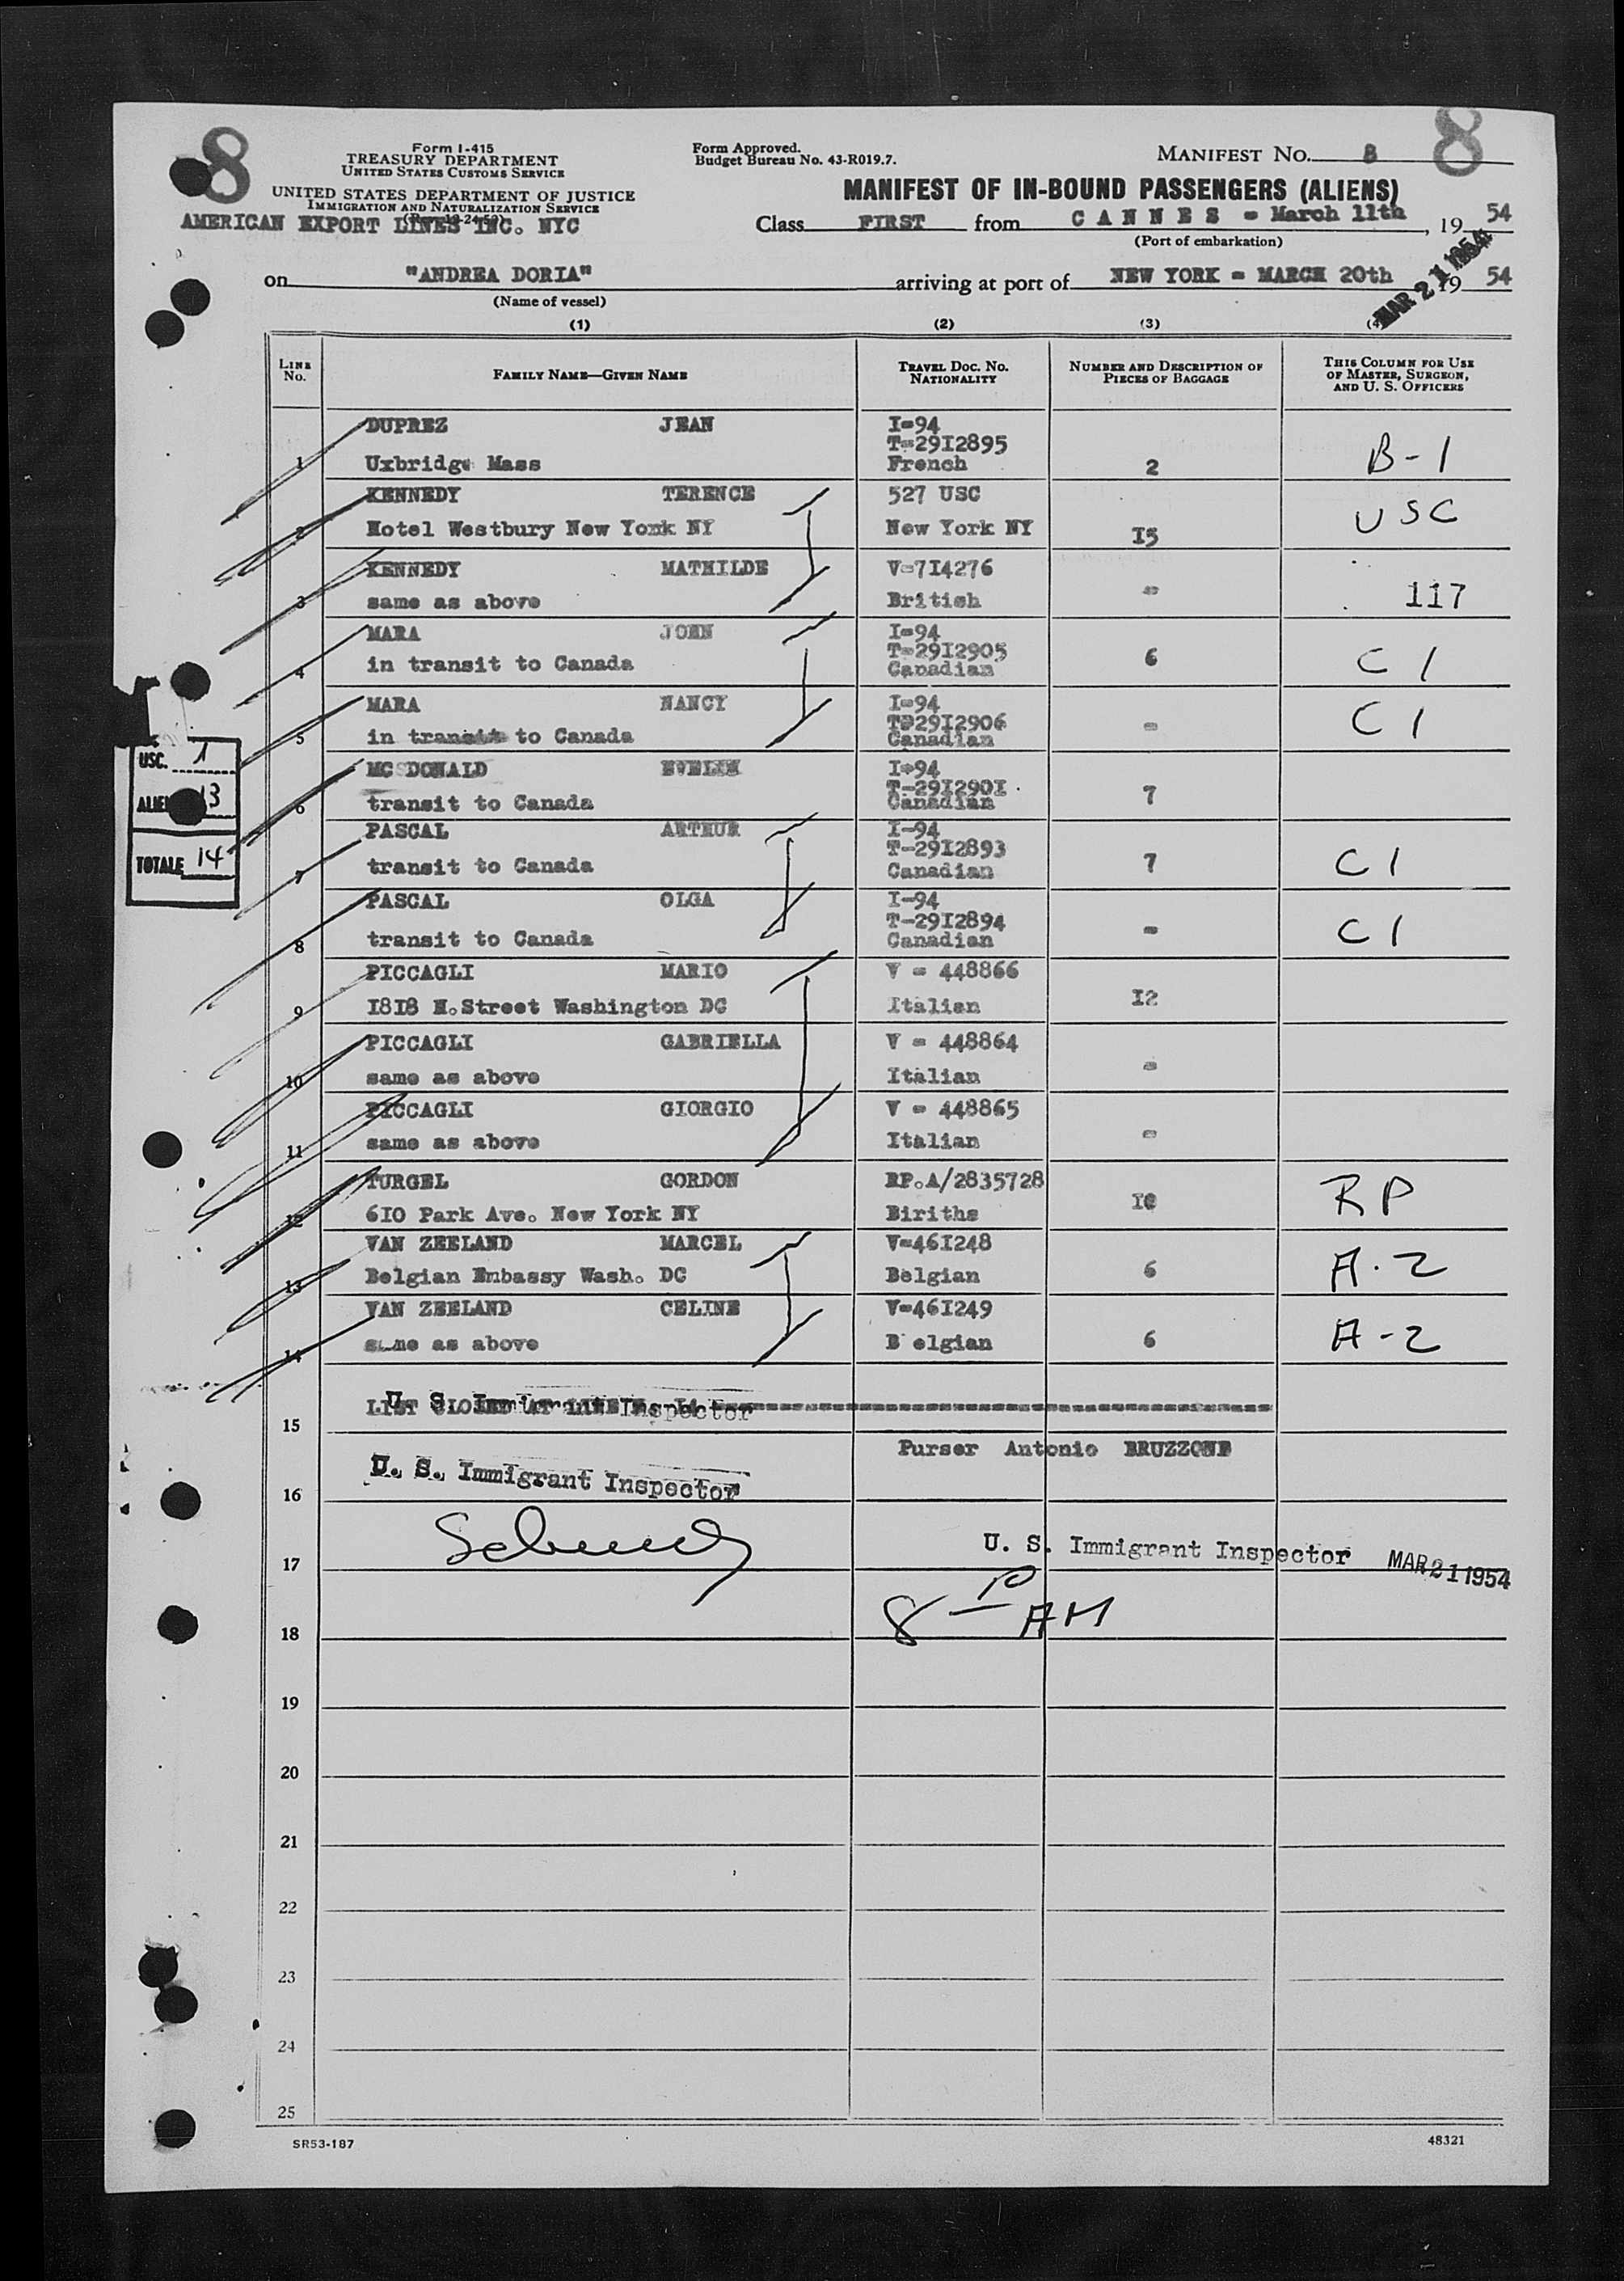 8
8
Form I-415
TREASURY DEPARTMENT
UNITED STATES CUSTOMS SERVICE
UNITED STATES DEPARTMENT OF JUSTICE
IMMIGRATION AND NATURALIZATION SERVICE
AMERICAN EXPORT LINES INC. NYC
Form Approved.
Budget Bureau No. 43-R019.7.
MANIFEST NO. 8
MANIFEST OF IN-BOUND PASSENGERS (ALIENS)
Class FIRST from C A N N E S - March 11th, 19 54
(Port of embarkation)
on "ANDREA DORIA" arriving at port of NEW YORK - MARCH 20th 19 54
MAR 21 1954
(Name of vessel)
(1) (2) (3)
LINE No. FAMILY NAME—GIVEN NAME TRAVEL DOC. NO. NATIONALITY NUMBER AND DESCRIPTION OF PIECES OF BAGGAGE THIS COLUMN FOR USE OF MASTER, SURGEON, AND U. S. OFFICERS
DUPREZ JEAN I-94
T-29I2895
1 Uxbridge Mass French 2 B-1
KENNEDY TERENCE 527 USC
2 Hotel Westbury New York NY New York NY I5 USC
KENNEDY MATHILDE V-7I4276
3 same as above British - 117
MARA JOHN I-94
T-29I2905
4 in transit to Canada Canadian 6 C 1
MARA NANCY I-94
T-29I2906
5 in transit to Canada Canadian - C 1
MC DONALD I-94
T-29I290I
6 transit to Canada Canadian 7
PASCAL ARTHUR I-94
T-29I2893
7 transit to Canada Canadian 7 C 1
PASCAL OLGA I-94
T-29I2894
8 transit to Canada Canadian - C 1
PICCAGLI MARIO V - 448866
9 I8I8 N.Street Washington DC Italien I2
PICCAGLI GABRIELLA V - 448864
10 same as above Italian -
PICCAGLI GIORGIO V - 448865
11 same as above Italian -
TURGEL GORDON RP.A/2835728
12 6I0 Park Ave. New York NY Biriths I0 RP
VAN ZEELAND MARCEL V-46I248
13 Belgian Embassy Wash. DC Belgian 6 A-2
VAN ZEELAND CELINE V-46I249
14 same as above B elgian 6 A-2
USC. 1
ALIE 13
TOTALE 14
15 U. S. Immigrant Inspector
Purser Antonio BRUZZONE
16 U. S. Immigrant Inspector
17 U. S. Immigrant Inspector MAR 21 1954
18 8 10 AM
19
20
21
22
23
24
25
SR53-187 48321